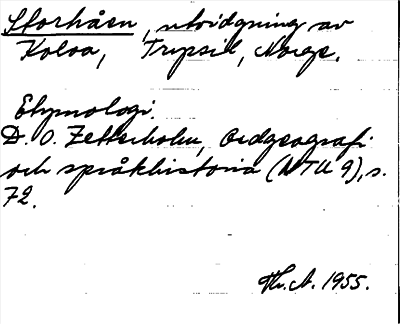 Storhåen, utvidgning av
Koloa, Trysil, Norge.
Etymologi.
D. O. Zetterholm, Ordgeografi
och språkhistoria (NTU 9), s.
72.
Th. A. 1955.